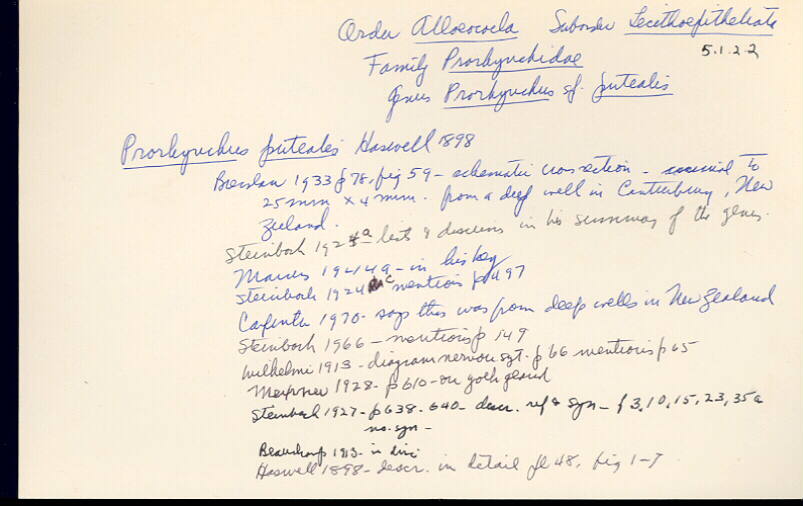 Order Alloeocoela Suborder Lecithoepitheliata
5.1.2.2
Family Prorhynchidae
Genus Prorhynchus sp. putealis
Prorhynchus putealis Haswell 1898
Bresslau 1933 p 78, fig 59 - schematic cross section - to
25 mm x 4 mm. from a deep well in Canterbury, New
Zeeland.
Steinbock 1924a - lists & discuss in his summary of the genus.
Marcus 1944a - in his key
Steinbock 1924 c mentions p 497
Carpenter 1970 - says this was from deep wells in New Zealand
Steinbock 1966 - mentions p 149
Wilhelmi 1913 - diagram nervous syst. p 66 mentions p 65
Meixner 1928 - p 610 - on yolk gland
Steinbock 1927 - p 638-640 - descr. ref & syn - f 3, 10, 15, 23, 35a
no. syn -
Beauchamp 1913 - in
Haswell 1898 - descr. in detail pl 48, fig 1-7